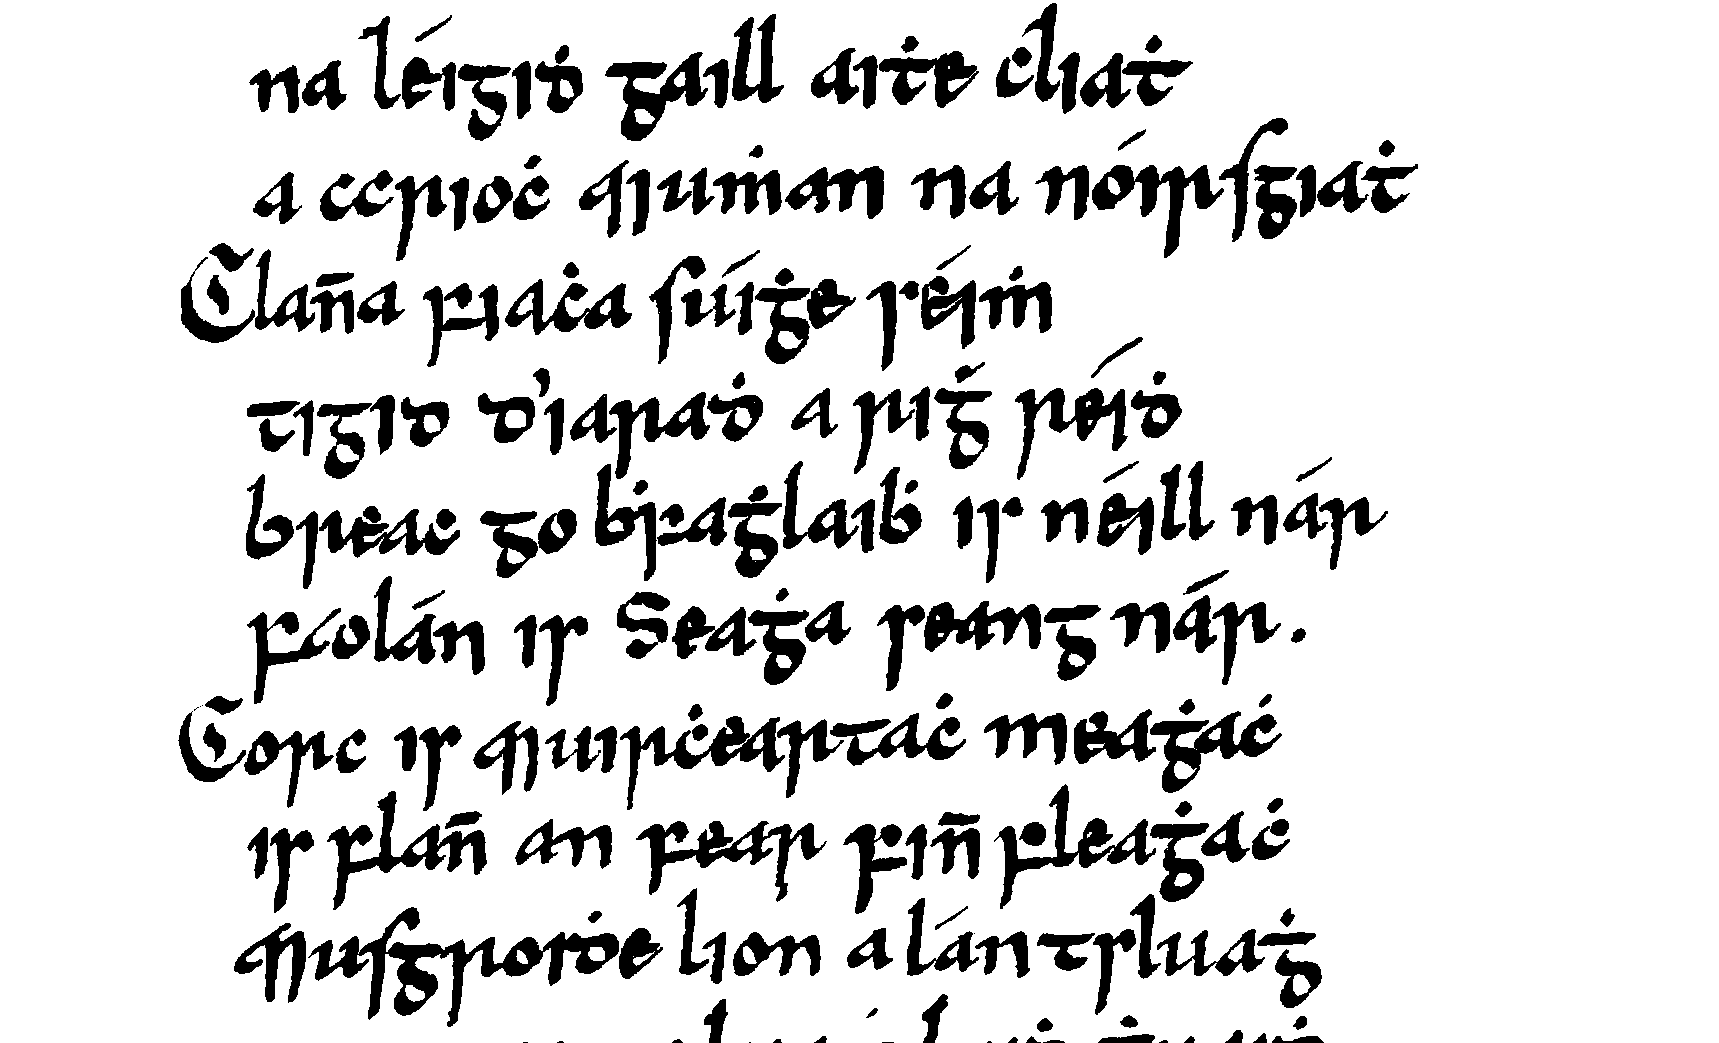 na léigiḋ gaill aiṫe ċliaṫ
a ccrioċ Muṁan na nóirsgiaṫ
Clan̄a fiaċa suiġe séiṁ
tigid d'iaraḋ a riġ réiḋ
breac go bḟaġlaiḃ is néill nár
faolán is Seaġa seang nár.
Corc is Muirċeartaċ meaġaċ
is flan̄ an fear fin̄ fleaġaċ
Musgrosḋe lion a lán tsluaġ